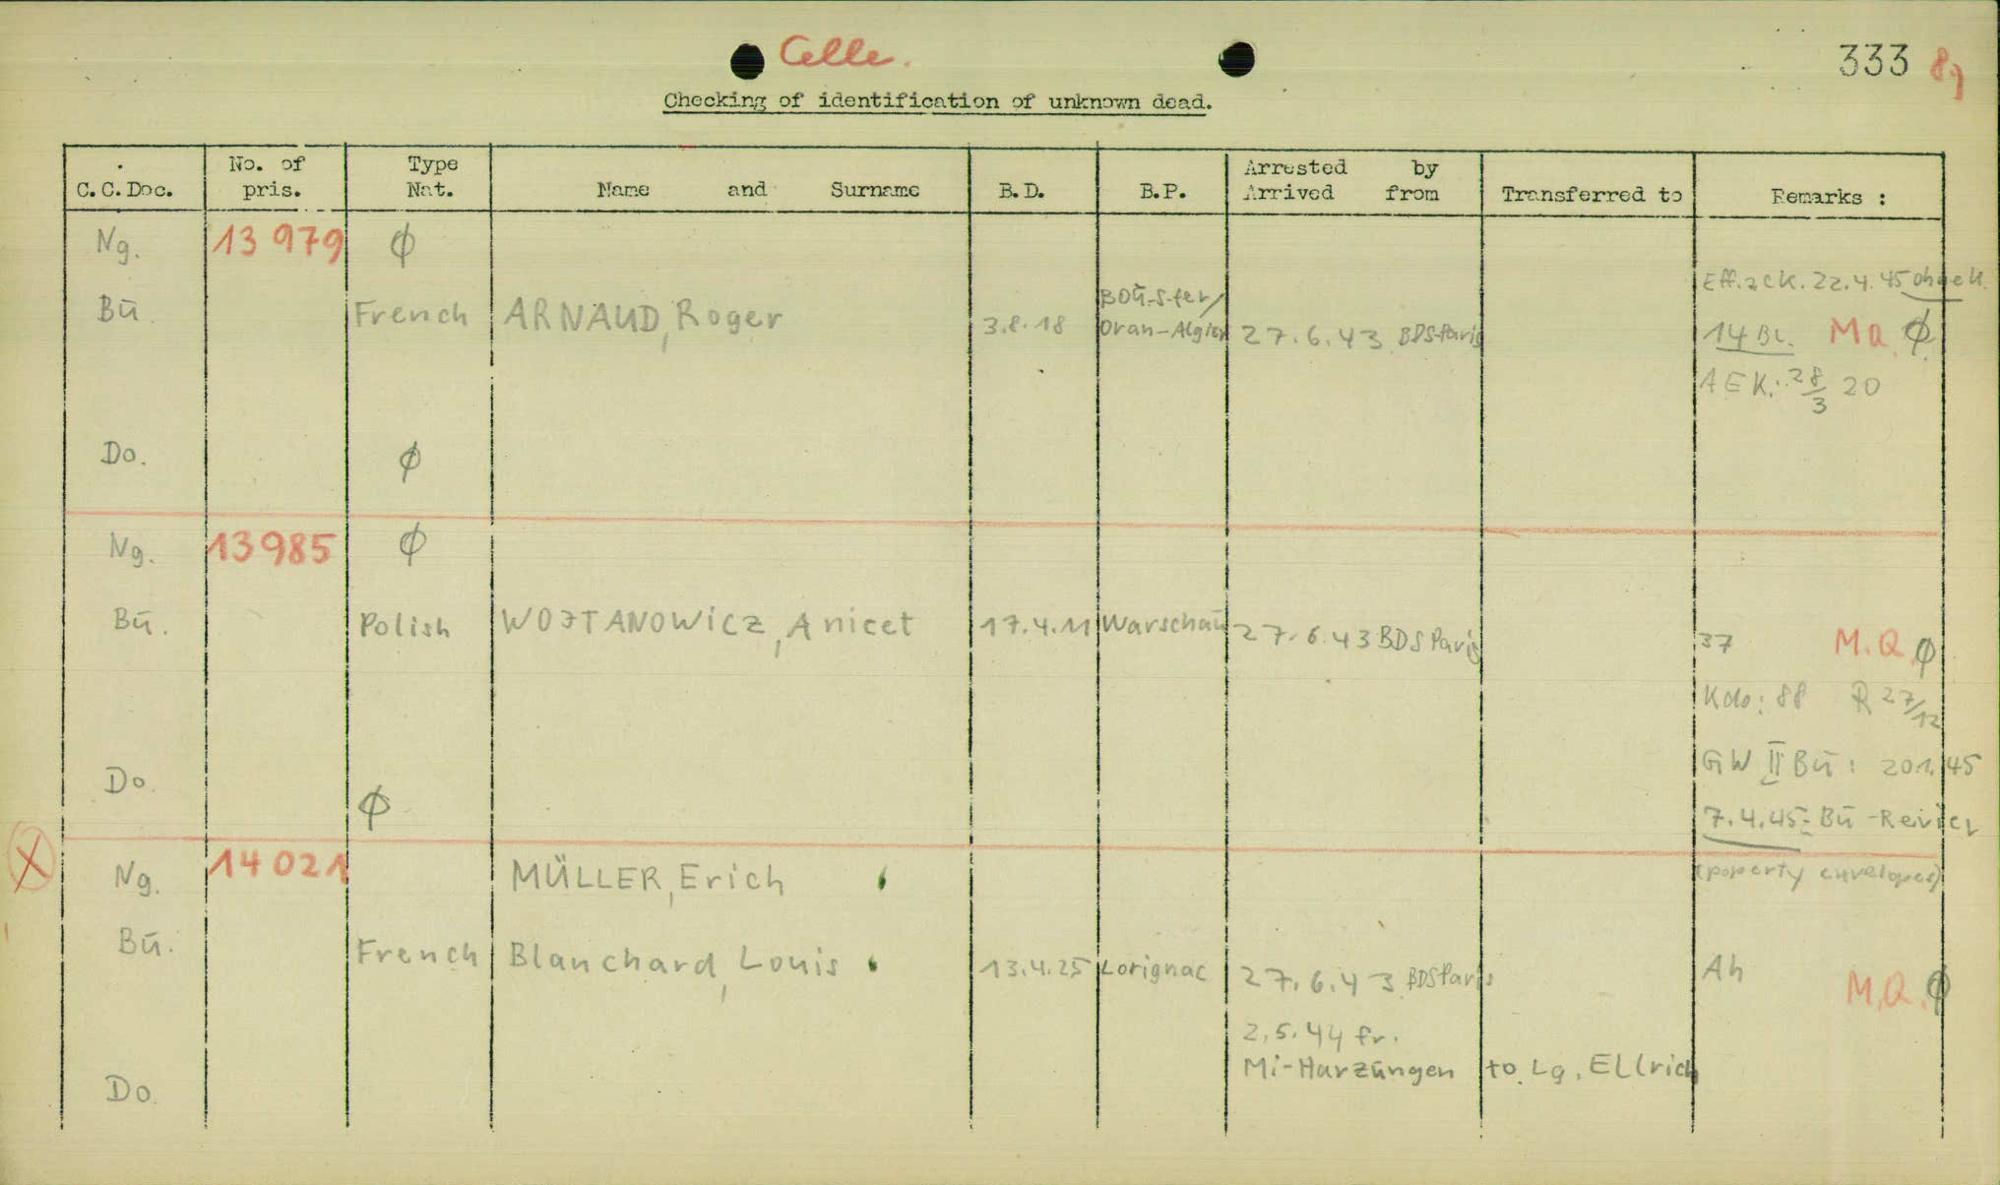 Celle.
333 8)
Checking of identification of unknown dead.
C.C.Doc. No. of pris. Type Nat. Name and Surname B.D. B.P. Arrested by Arrived from Transferred to Remarks :
Ng. 13 979 ϕ
Eff.zck. 22.4.45
Bū. French ARNAUD, Roger 3.8.18 Oran-Algier 27.6.43 BDS Paris 14 Bl. M Q. ϕ
AEK.: 28/3 20
Do. ϕ
Ng. 13985 ϕ
Bū. Polish WOJTANOWicz, Anicet 17.4.11 Warschaū 27.6.43 BDS Paris 37 M.Q. ϕ
Kdo: 88 R 27/12
GW II Bū: 20.1.45
Do. ϕ 7.4.45: Bū -Revier
X Ng. 14 021 MÜLLER, Erich (poperty envelopes)
Bū. French Blanchard, Louis 13.4.25 Lorignac 27.6.43 BDS Paris Ah M.Q. ϕ
2.5.44 fr.
Mi-Harzūngen to Lg. Ellrich
Do.